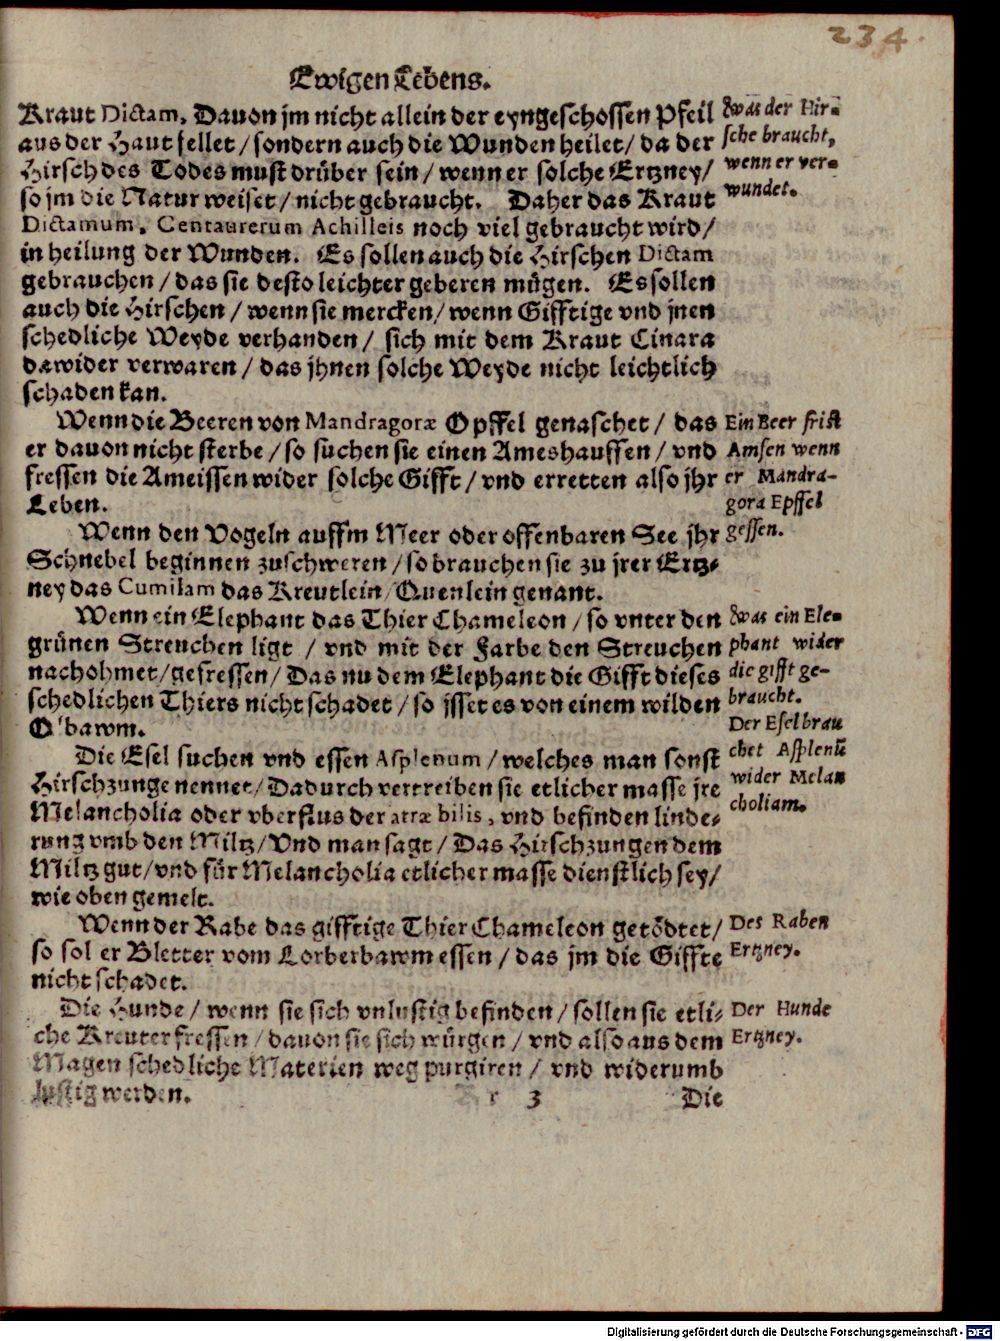 234
Ewigen Lebens.
Kraut Dictam. Dauon jm nicht allein der eyngeschossen Pfeil
aus der Haut fellet / sondern auch die Wunden heilet / da der
Hirsch des Todes must drüber sein / wenn er solche Ertzney /
so jm die Natur weiset / nicht gebraucht. Daher das Kraut
Dictamum. Centaurerum Achilleis noch viel gebraucht wird /
in heilung der Wunden. Es sollen auch die Hirschen Dictam
gebrauchen / das sie desto leichter geberen mügen. Es sollen
auch die Hirschen / wenn sie mercken / wenn Gifftige vnd jnen
schedliche Weyde verhanden / sich mit dem Kraut Cinara
dawider verwaren / das jhnen solche Weyde nicht leichtlich
schaden kan.
Was der Hir=
sche braucht,
wenn er ver=
wundet.
Wenn die Beeren von Mandragoræ Opffel genaschet / das
er dauon nicht sterbe / so suchen sie einen Ameshauffen / vnd
fressen die Ameissen wider solche Gifft / vnd erretten also jhr
Leben.
Ein Beer frist
Amsen wenn
er Mandra-
gora Epffel
gessen.
Wenn den Vogeln auffm Meer oder offenbaren See jhr
Schnebel beginnen zuschweren / so brauchen sie zu jrer Ertz=
ney das Cumilam das Kreutlein / Quenlein genant.
Wenn ein Elephant das Thier Chameleon / so vnter den
grünen Streuchen ligt / vnd mit der Farbe den Streuchen
nachohmet / gefressen / Das nu dem Elephant die Gifft dieses
schedlichen Thiers nicht schadet / so jsset es von einem wilden
Olbawm.
Was ein Ele=
phant wider
die gifft ge-
braucht.
Die Esel suchen vnd essen Asplenum / welches man sonst
Hirschzunge nennet / Dadurch vertreiben sie etlicher masse jre
Melancholia oder vberflus der atræ bilis, vnd befinden linde=
rung vmb den Miltz / Vnd man sagt / Das Hirschzungen dem
Miltz gut / vnd für Melancholia etlicher masse dienstlich sey /
wie oben gemelt.
Der Esel brau
chet Asplenū
wider Melan
choliam.
Wenn der Rabe das gifftige Thier Chameleon getödtet /
so sol er Bletter vom Lorberbawm essen / das jm die Giffte
nicht schadet.
Des Raben
Ertzney.
Die Hunde / wenn sie sich vnlustig befinden / sollen sie etli=
che Kreuter fressen / dauon sie sich würgen / vnd also aus dem
Magen schedliche Materien weg purgiren / vnd widerumb
lustig werden.
Der Hunde
Ertzney.
r 3 Die
Digitalisierung gefördert durch die Deutsche Forschungsgemeinschaft - DFG